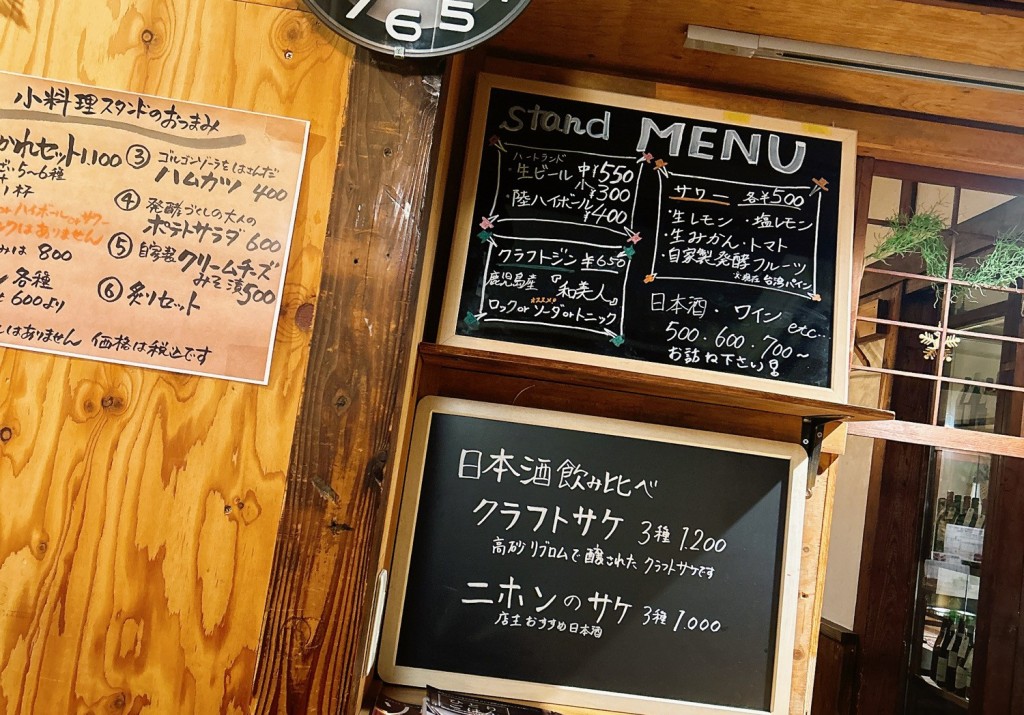 7 6 5
小料理スタンドのおつまみ
かれセット 1.100
・5~6種
1杯
orハイボールorサワー
はありません
みは 800
各種
600より
③ ゴルゴンゾーラをはさんだ
ハムカツ 400
④ 発酵づくしの大人の
ポテトサラダ 600
⑤ 自家製 クリームチーズ
みそ漬 500
⑥ 炙りセット
はありません 価格は税込です
Stand MENU
ハートランド
・生ビール 中¥550
小¥300
・陸ハイボール
¥400
クラフトジン ¥650
鹿児島産『和美人』
オススメ
ロックorソーダorトニック
サワー 各¥500
・生レモン ・塩レモン
・生みかん・トマト
・自家製発酵フルーツ
※現在 台湾パイン
日本酒・ワイン etc…
500.600.700~
お訪ね下さい!
日本酒飲み比べ
クラフトサケ 3種 1.200
高砂 リブロムで醸された クラフトサケです
ニホンのサケ 3種 1.000
店主おすすめ日本酒